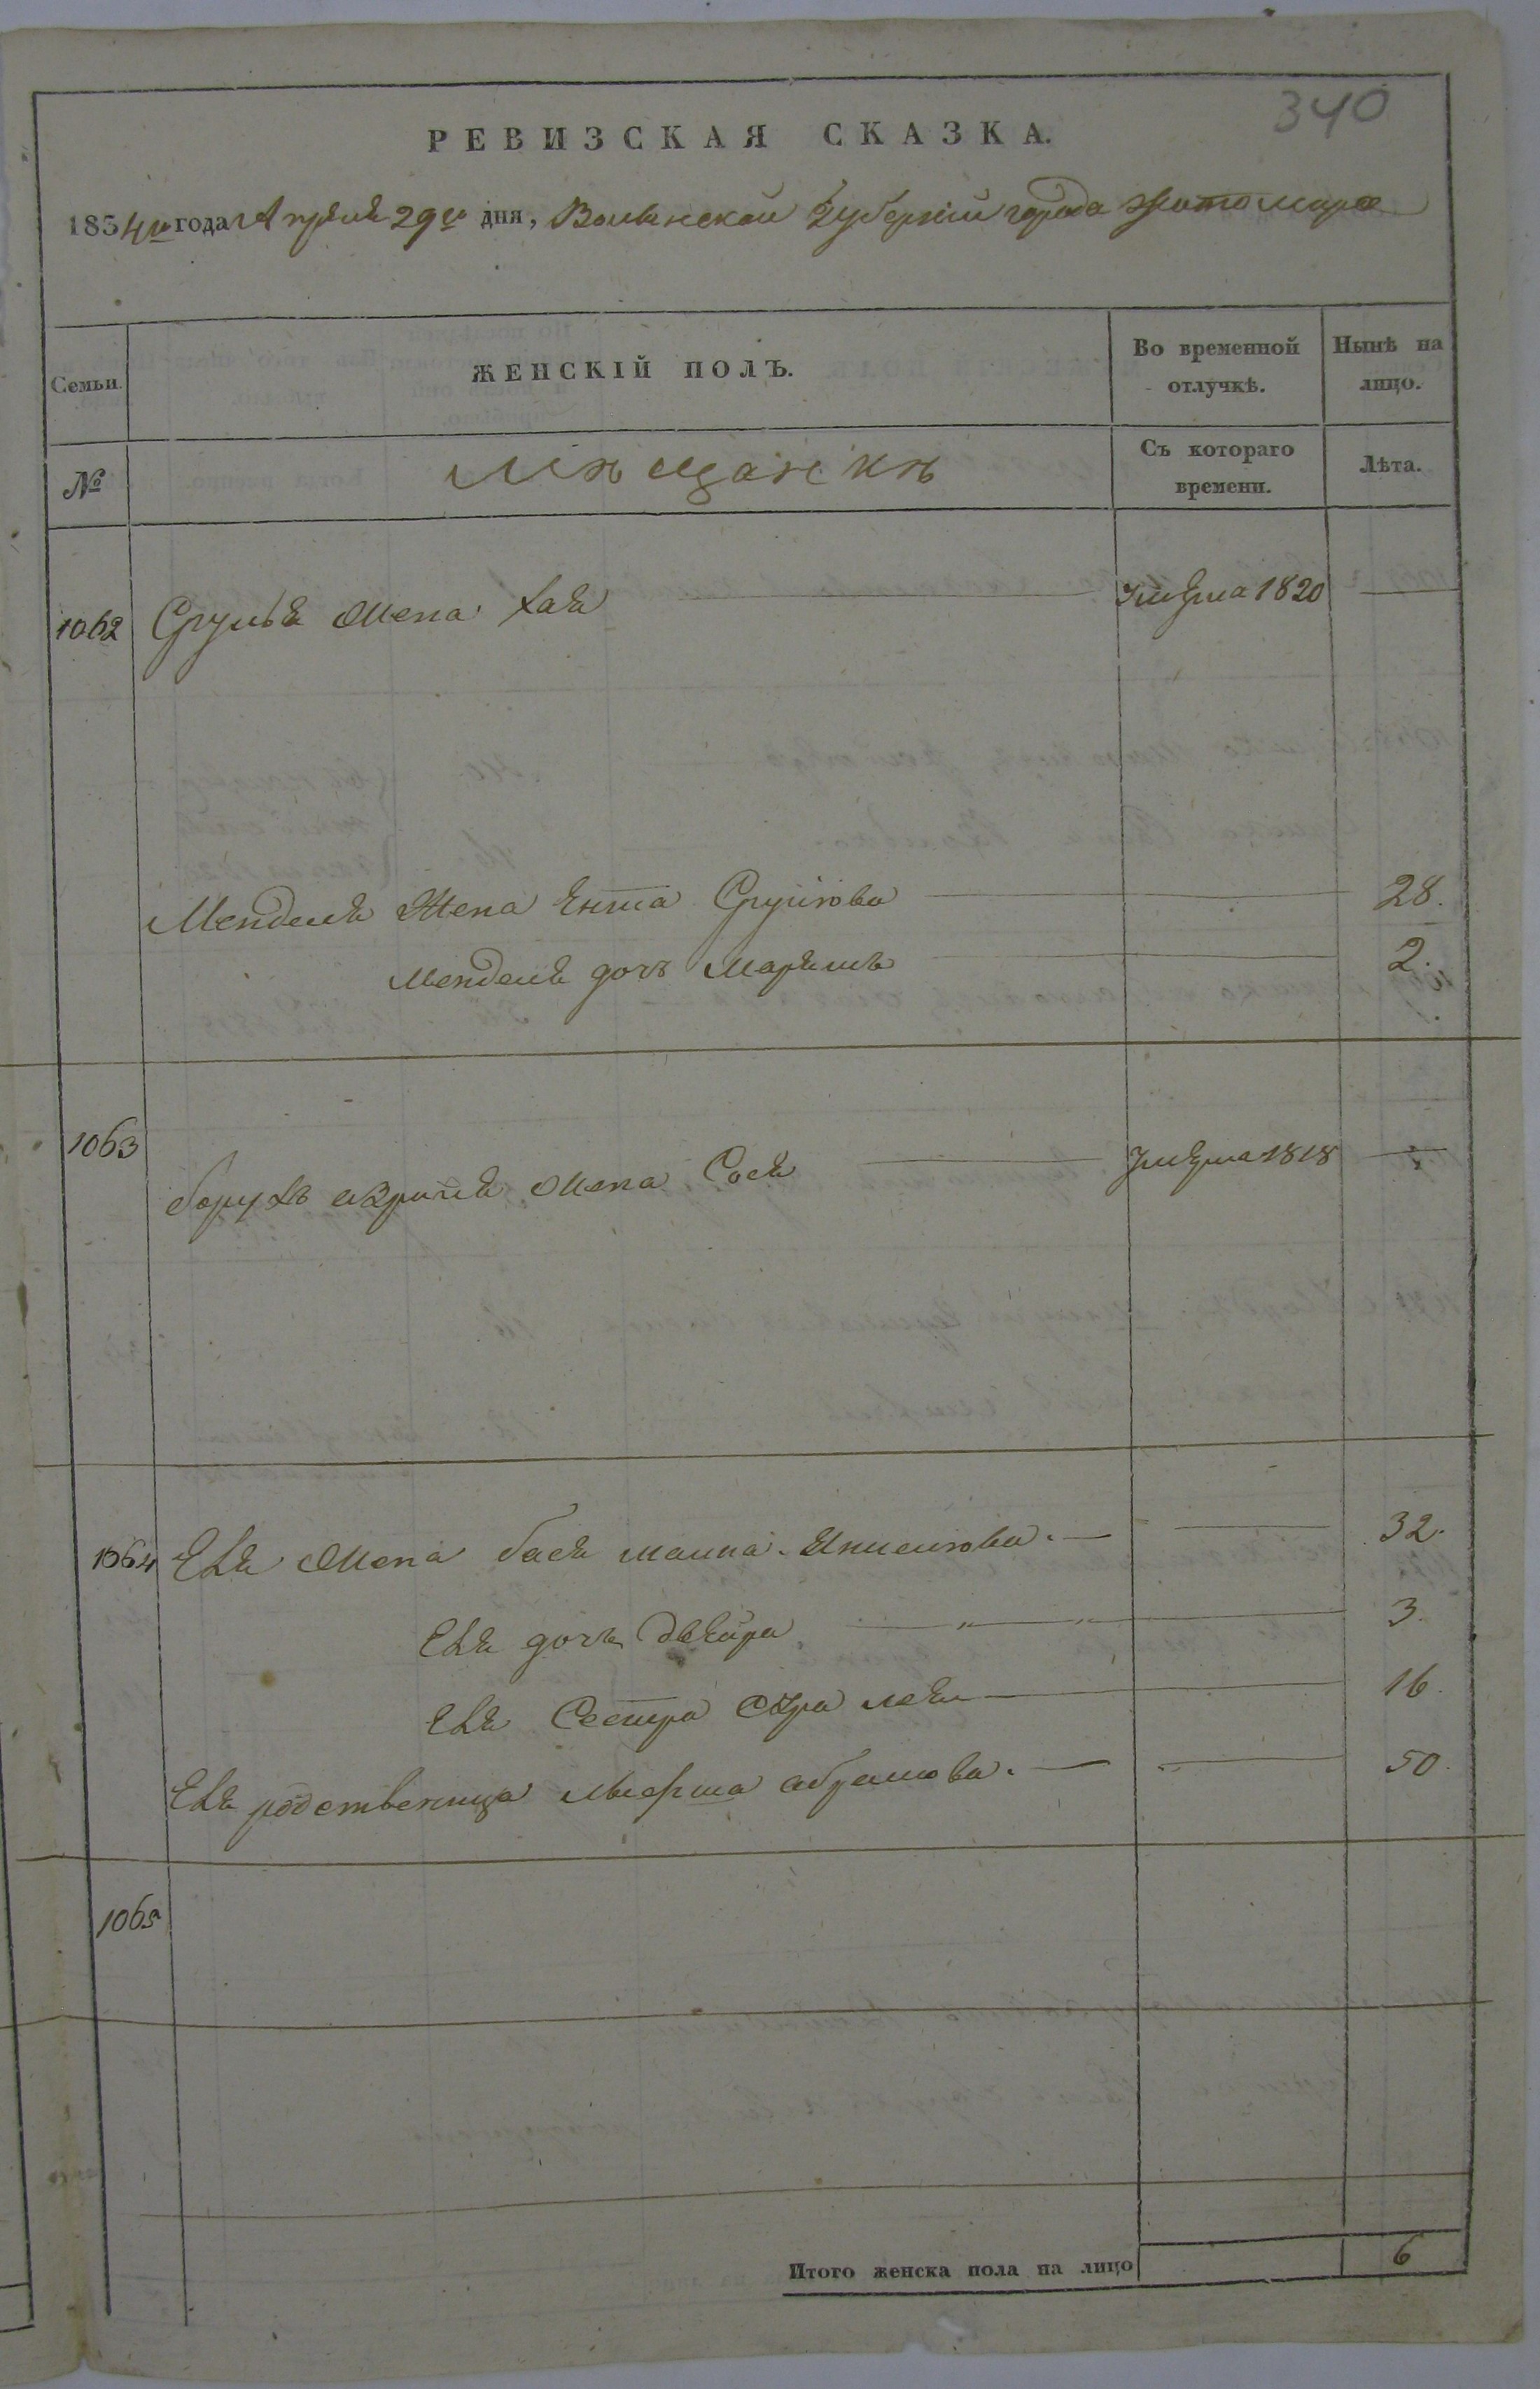 340
РЕВИЗСКАЯ СКАЗКА.
1834го года Апреля 29го дня, Волынской Губернии города Житомира
Семьи. ЖЕНСКІЙ ПОЛЪ. Во временной отлучкѣ. Нынѣ на лицо.
№ Мѣщанкѣ Съ котораго времени. Лѣта.
1062 Сруля Жена Хая умерша 1820 —
Менделя Жена Ента Срулюва — 28.
Менделя дочь Марямъ — 2.
1063
Борухъ Жена Сося — умерша 1818 —
1064 Его Жена Бася малка — 32.
Его дочь Двейра — 3.
Его Сестра Сура лея — 16.
Его родственица абрамова. — 50.
1065
Итого женска пола на лицо 6